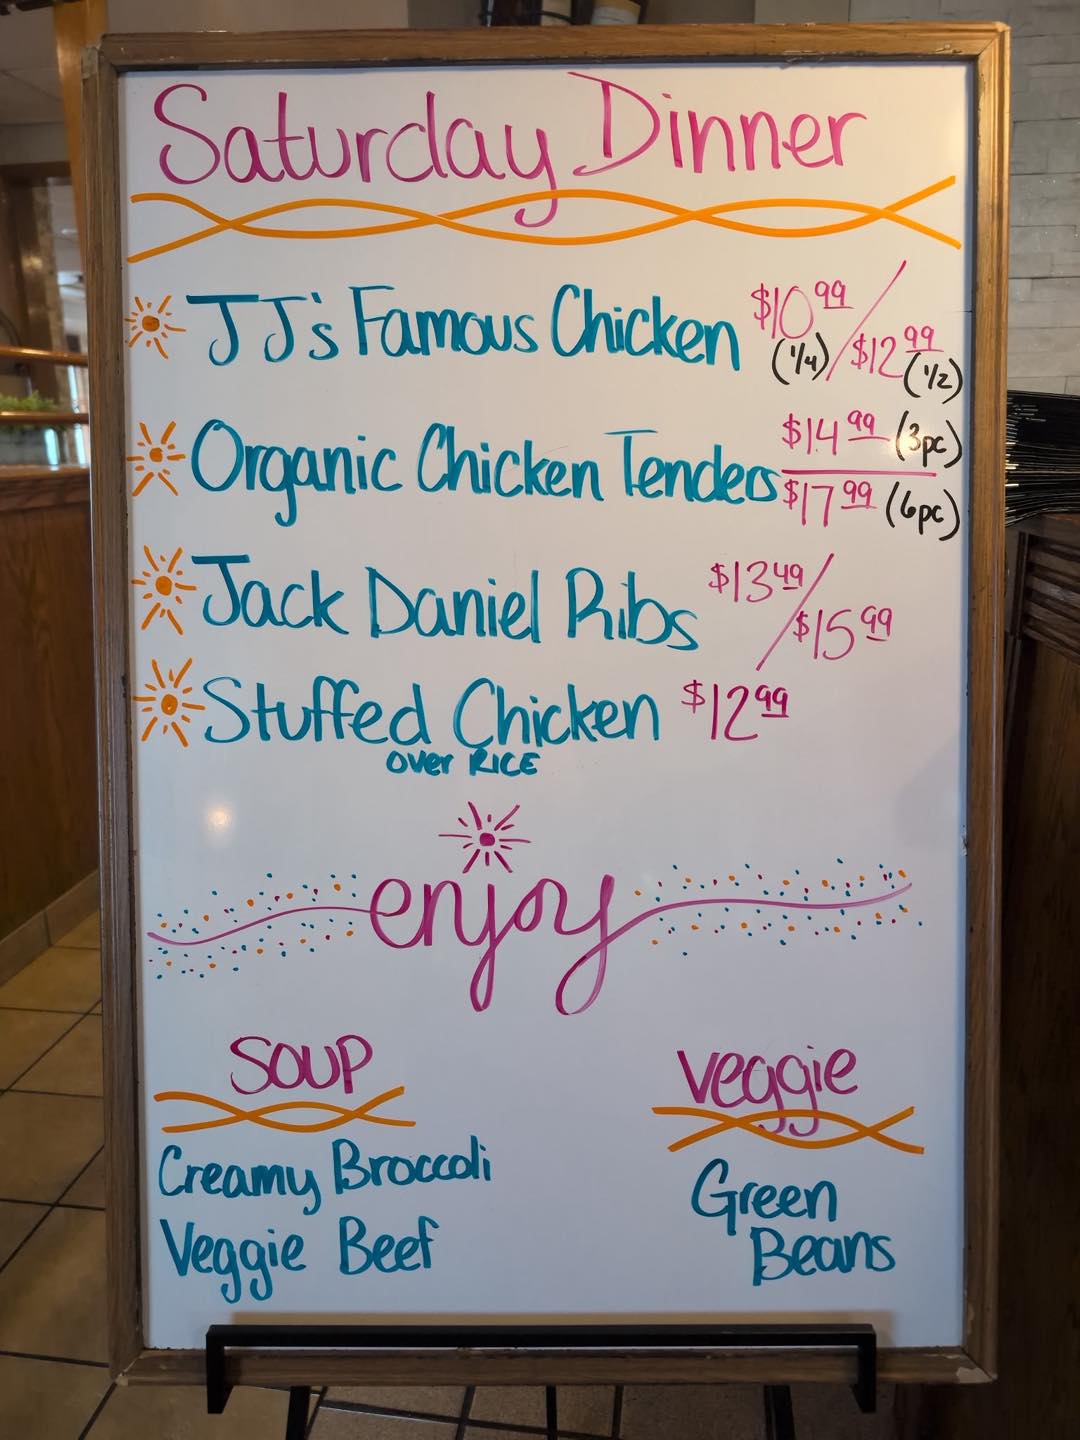 Saturday Dinner
JJ's Famous Chicken $10.99 (1/4) / $12.99 (1/2)
Organic Chicken Tenders $14.99 (3pc)
$17.99 (6pc)
Jack Daniel Ribs $13.49 / $15.99
Stuffed Chicken $12.99
over RICE
enjoy
SOUP
Creamy Broccoli
Veggie Beef
veggie
Green
Beans